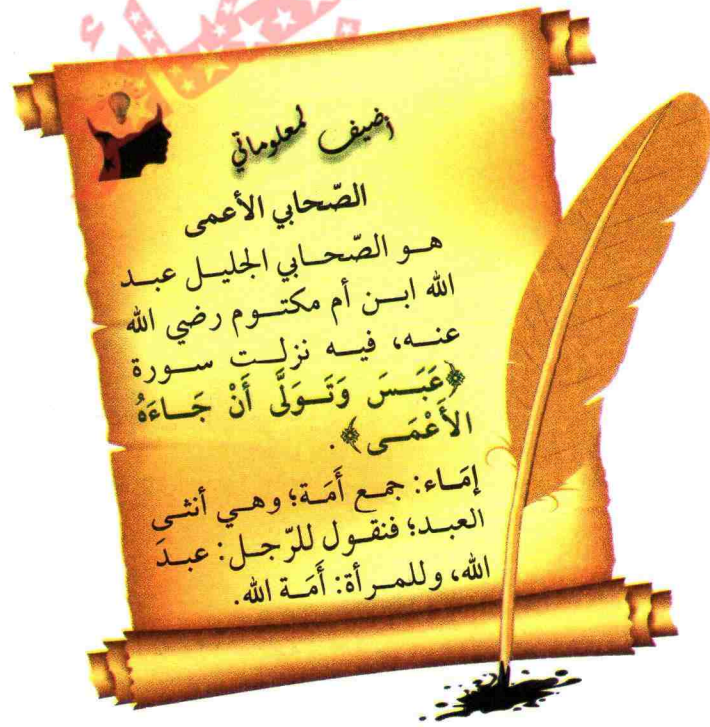 أضيف لمعلوماتي
الصّحابي الأعمى
هو الصّحابي الجليل عبد
الله ابن أم مكتوم رضي الله
عنه، فيه نزلت سورة
﴿عَبَسَ وَتَوَلَّى أَنْ جَاءَهُ
الأَعْمَى﴾.
إمَاء: جمع أَمَة؛ وهي أنثى
العبد؛ فنقول للرّجل: عبدَ
الله، وللمرأة: أَمَة الله.